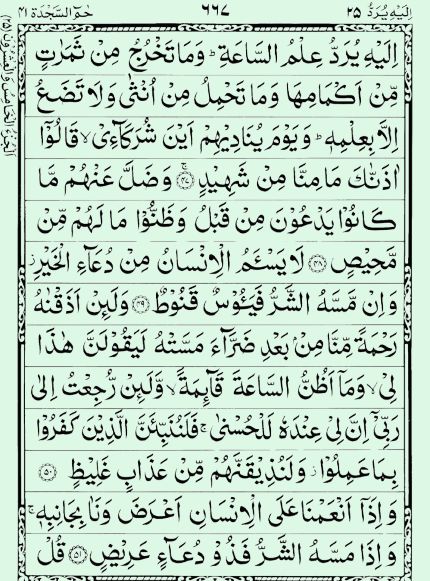 اِلَيْهِ يُرَدُّ ٢٥ ٦٦٧ حٰمٓ السَّجْدَة ٤١
اِلَيْهِ يُرَدُّ عِلْمُ السَّاعَةِ ؕ وَمَا تَخْرُجُ مِنْ ثَمَرٰتٍ
مِّنْ اَكْمَامِهَا وَمَا تَحْمِلُ مِنْ اُنْثٰى وَلَا تَضَعُ
اِلَّا بِعِلْمِهٖ ؕ وَيَوْمَ يُنَادِيْهِمْ اَيْنَ شُرَكَآءِيْ ۙ قَالُوْۤا
اٰذَنّٰكَ مَا مِنَّا مِنْ شَهِيْدٍ ۚ ﴿٤٧﴾ وَضَلَّ عَنْهُمْ مَّا
كَانُوْا يَدْعُوْنَ مِنْ قَبْلُ وَظَنُّوْا مَا لَهُمْ مِّنْ
مَّحِيْصٍ ﴿٤٨﴾ لَا يَسْـَٔمُ الْاِنْسَانُ مِنْ دُعَآءِ الْخَيْرِ ز
وَاِنْ مَّسَّهُ الشَّرُّ فَيَـُٔوْسٌ قَنُوْطٌ ﴿٤٩﴾ وَلَئِنْ اَذَقْنٰهُ
رَحْمَةً مِّنَّا مِنْۢ بَعْدِ ضَرَّآءَ مَسَّتْهُ لَيَقُوْلَنَّ هٰذَا
لِيْ ۙ وَمَاۤ اَظُنُّ السَّاعَةَ قَآئِمَةً ۙ وَّلَئِنْ رُّجِعْتُ اِلٰى
رَبِّيْۤ اِنَّ لِيْ عِنْدَهٗ لَلْحُسْنٰى ۚ فَلَنُنَبِّئَنَّ الَّذِيْنَ كَفَرُوْا
بِمَا عَمِلُوْا ز وَلَنُذِيْقَنَّهُمْ مِّنْ عَذَابٍ غَلِيْظٍ ﴿٥٠﴾
وَاِذَاۤ اَنْعَمْنَا عَلَى الْاِنْسَانِ اَعْرَضَ وَنَاٰ بِجَانِبِهٖ ۚ
وَاِذَا مَسَّهُ الشَّرُّ فَذُوْ دُعَآءٍ عَرِيْضٍ ﴿٥١﴾ قُلْ
اَلْجُزْءُ الْخَامِسُ وَالْعِشْرُوْنَ (٢٥)